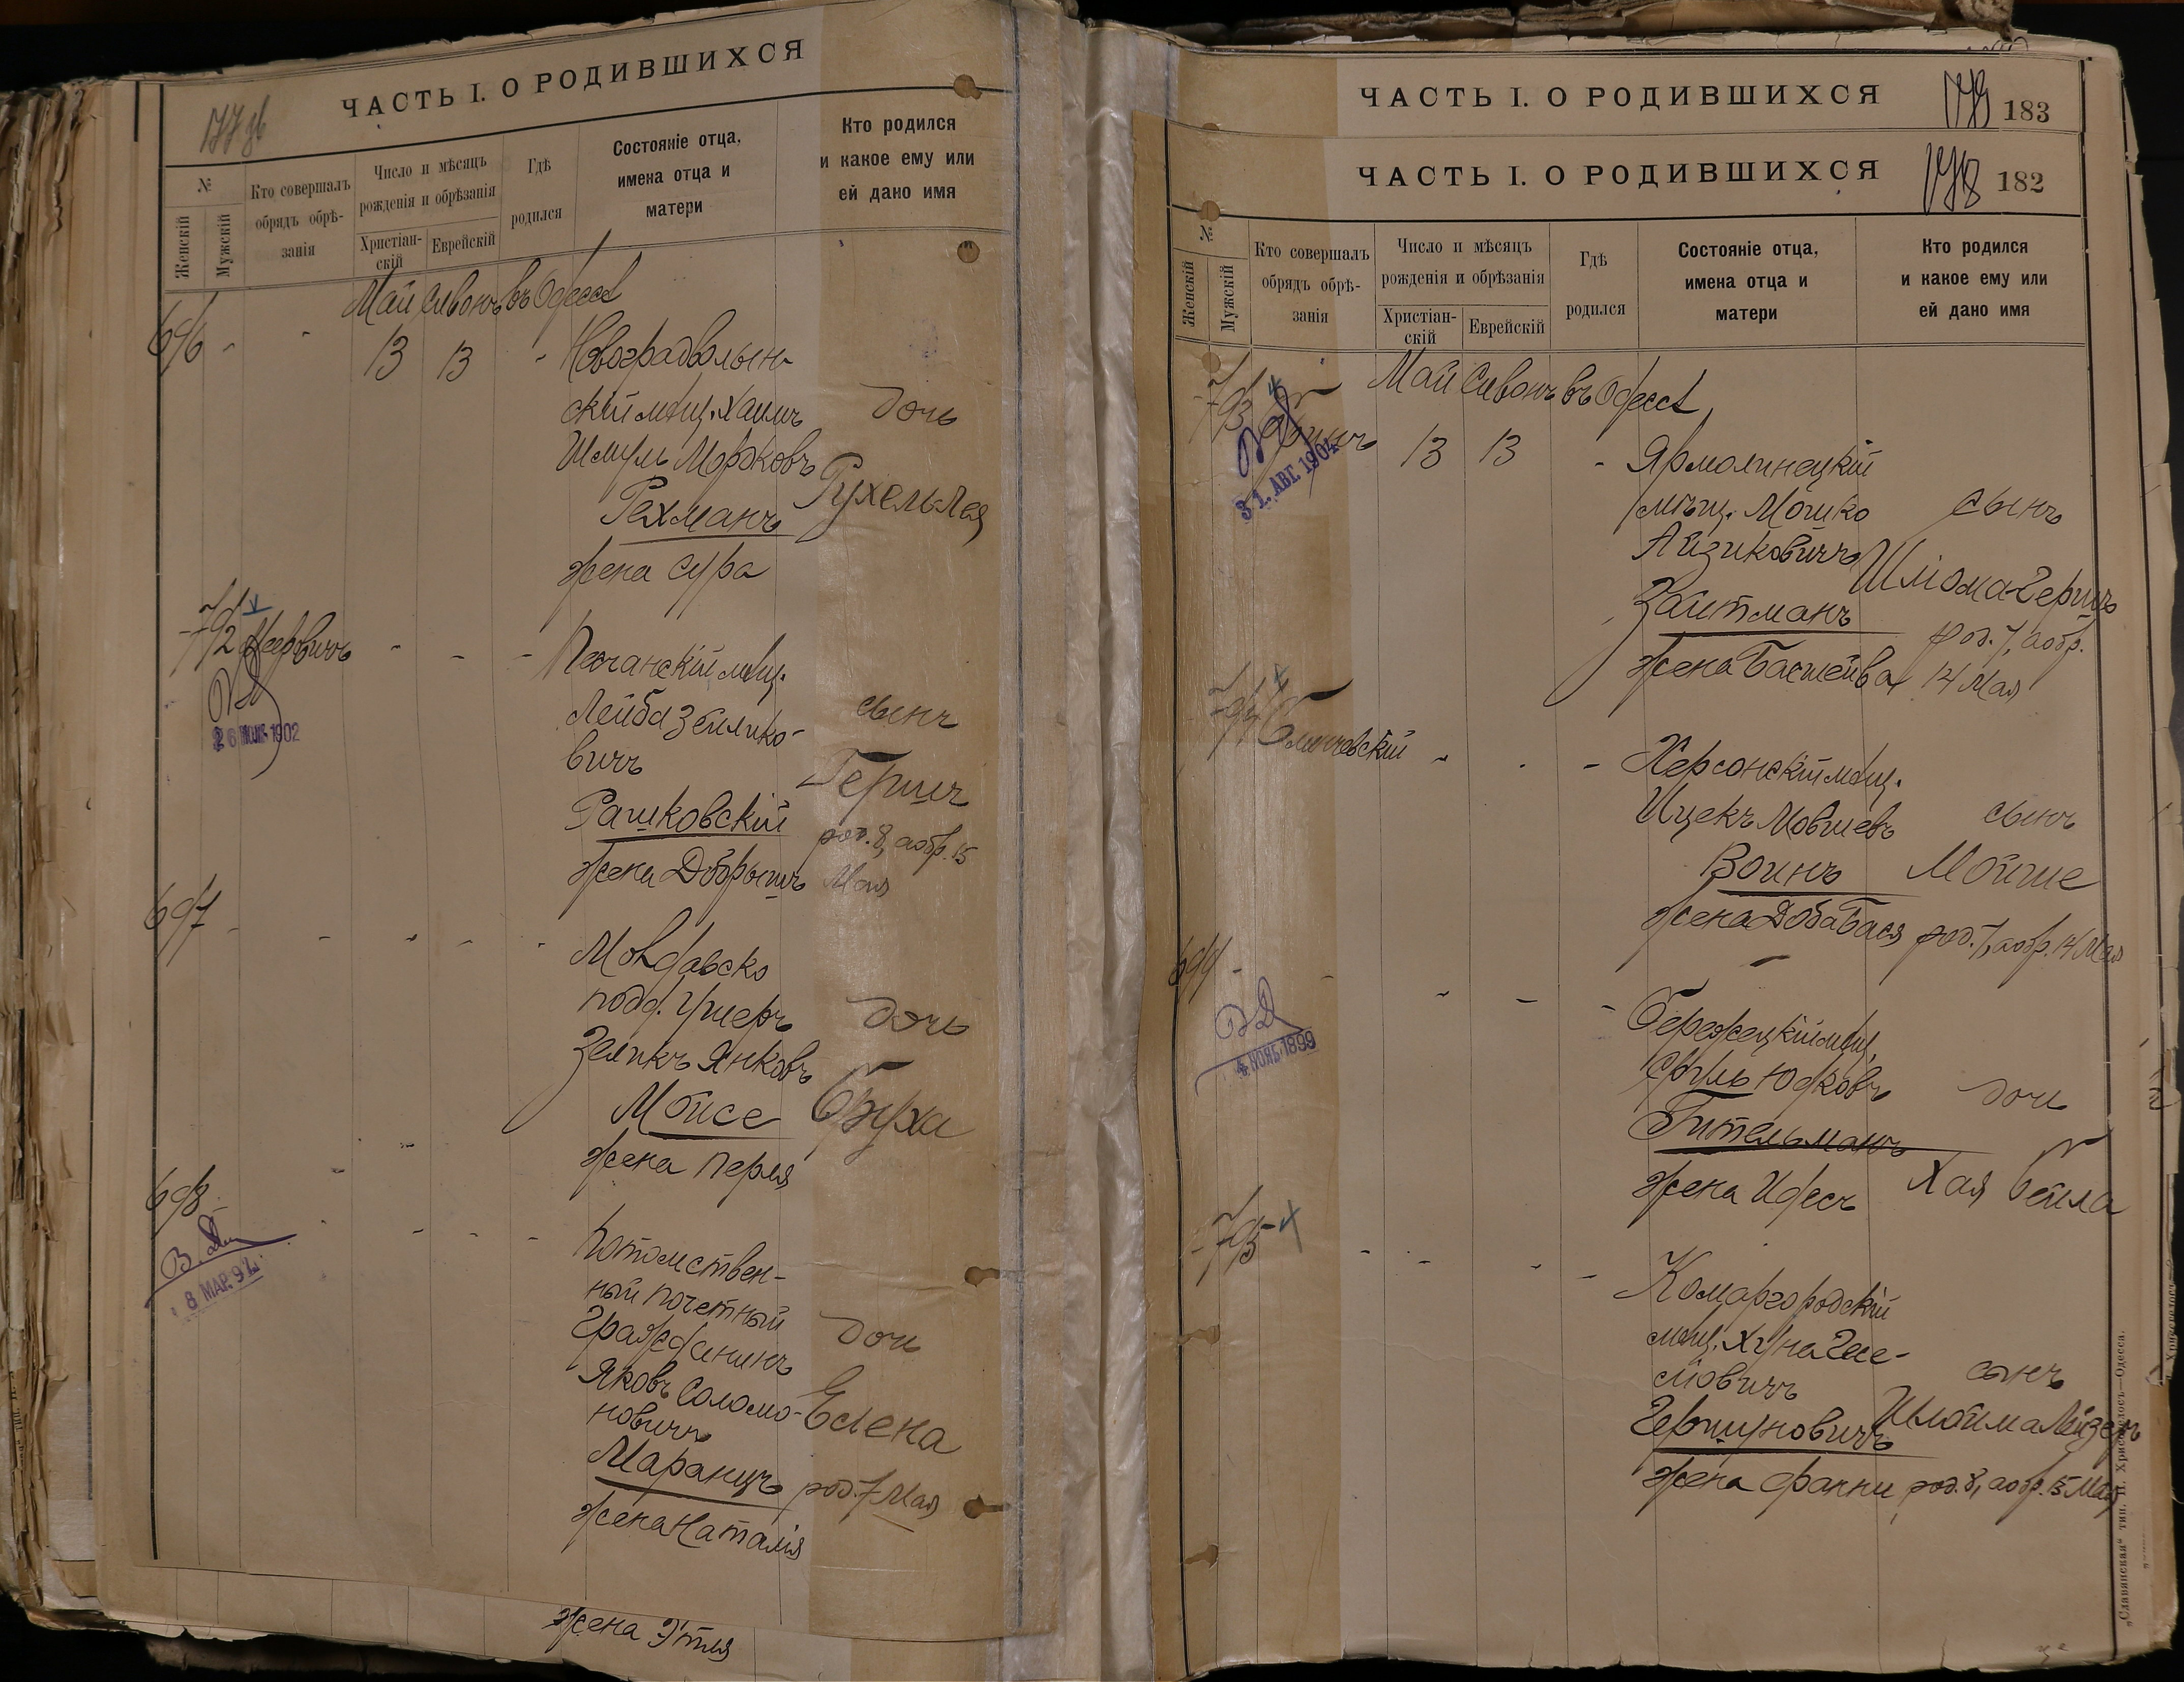 ЧАСТЬ I. О РОДИВШИХСЯ
№
Женскій
Мужскій
Кто совершалъ
обрядъ обрѣ-
занія
Число и мѣсяцъ
рожденія и обрѣзанія
Христіан-
скій
Еврейскій
Гдѣ
родился
Состояніе отца,
имена отца и
матери
Кто родился
и какое ему или
ей дано имя
Май Сивонъ въ Одессѣ
696 - - 13 13 - Новоградволын-
скій мѣщ. Хаимъ
Шмуль Мордковъ
Рехманъ
жена Сура
дочь
Рухель Лея
792 Мееровичъ - - - Песчанскій мѣщ.
Лейба Зейлико-
вичъ
Рашковскій
жена Добрышъ
сынъ
Гершъ
род. 8, а обр. 15
Мая
26 1902
697 - - - - - Молдавско
подд. Ушеръ
Зеликъ Янковъ
Мойсе
жена Перля
дочь
Бруха
698 - - - Потомствен-
ный почетный
гражданинъ
Яковъ Соломо-
новичъ
Маранцъ
жена Наталія
дочь
Елена
род. 7 Мая
8 МАР. 92
жена Этля
ЧАСТЬ I. О РОДИВШИХСЯ 183
ЧАСТЬ I. О РОДИВШИХСЯ 178 182
№
Женскій
Мужскій
Кто совершалъ
обрядъ обрѣ-
занія
Число и мѣсяцъ
рожденія и обрѣзанія
Христіан-
скій
Еврейскій
Гдѣ
родился
Состояніе отца,
имена отца и
матери
Кто родился
и какое ему или
ей дано имя
Май Сивонъ въ Одессѣ
793 13 13 - Ярмолинецкій
мѣщ. Мошко
Айзиковичъ
Зайтманъ
жена Басшейва
сынъ
Шлома-Гершъ
род. 7, а обр.
14 Мая
31. АВГ. 1904
794 - - - Херсонскій мѣщ.
Ицекъ Мовшевъ
Воинъ
жена Доба Бася
сынъ
Мойше
род. 7, а обр. 14 Мая
699 - - - - - Бережецкій мѣщ.
Сруль Юдковъ
Гительманъ
жена Идесъ
дочь
Хая Бейла
4 НОЯБ 1899
795 - - - - Комаргородскій
мѣщ. Хуна Иое-
сіовичъ
Гершуновичъ
жена Фанни
сынъ
Шлойма Лейзеръ
род. 8, а обр. 15 Мая
„Славянская“ тип. Н. Хрисогелосъ—Одесса.